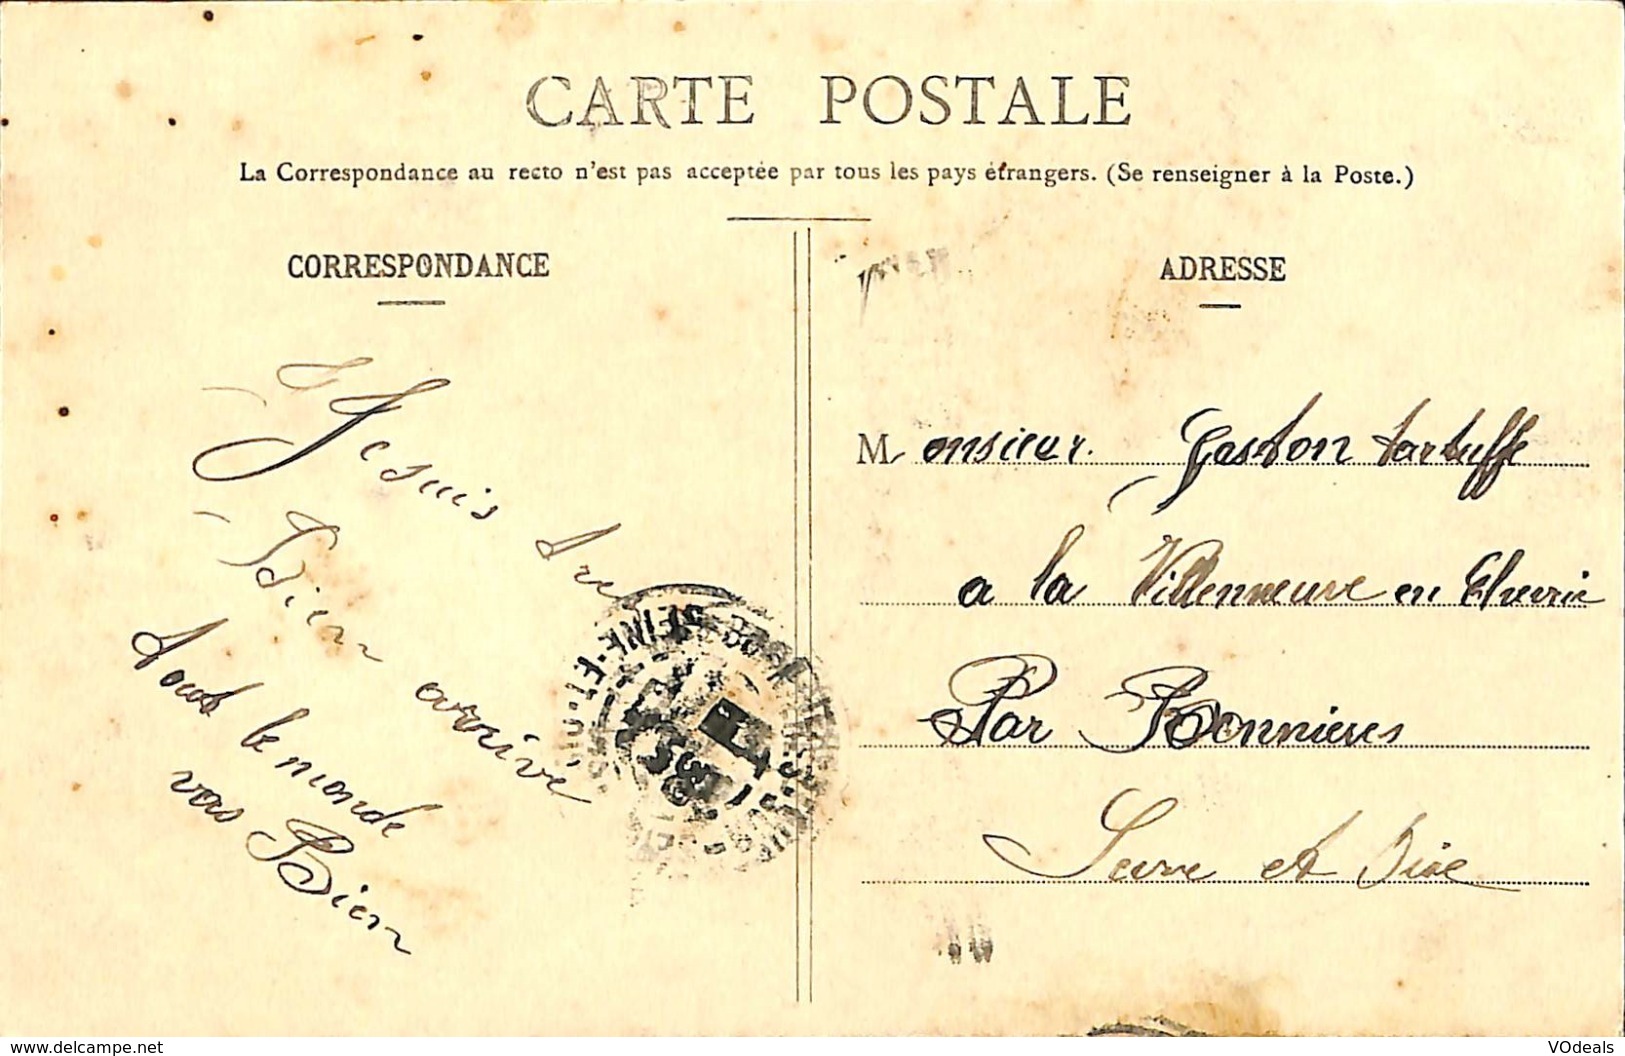 CARTE POSTALE
La Correspondance au recto n'est pas acceptée par tous les pays étrangers. (Se renseigner à la Poste.)
CORRESPONDANCE
Je suis tres
Bien arrive
tout le monde
vas Bien
ADRESSE
Monsieur. Gaston tartuffe
a la Villenneuve en Chevrie
Par Bonnieres
Seine et Oise
SEINE-ET-OISE
www.delcampe.net
VOdeals